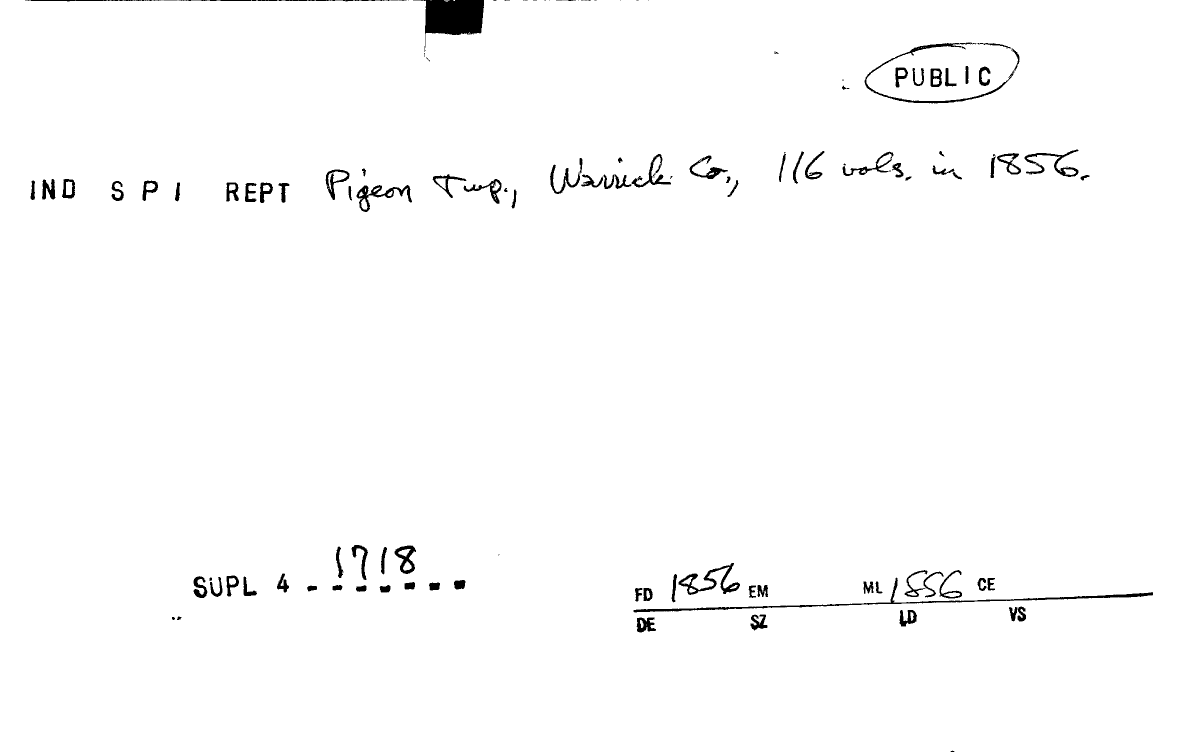 PUBLIC
IND S P I REPT Pigeon Twp., Warrick Co., 116 vols. in 1856.
SUPL 4 - 1718
FD 1856 EM ML 1856 CE
DE SZ LD VS